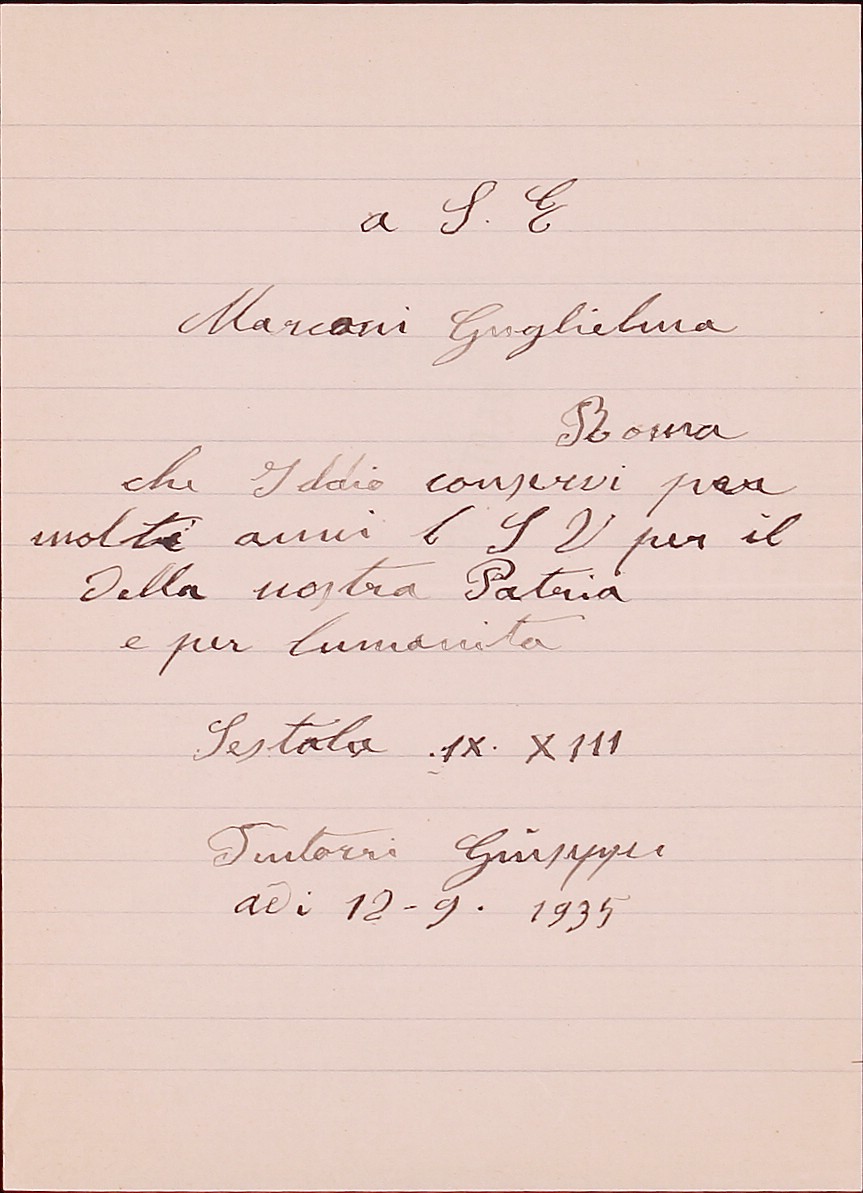 a S. E
Marconi Guglielmo
Roma
che Iddio conservi per
molti anni l S V per il
della nostra Patria
e per lumanita
Sestola .IX. XIII
Tintorri Giuseppe
adi 12-9. 1935